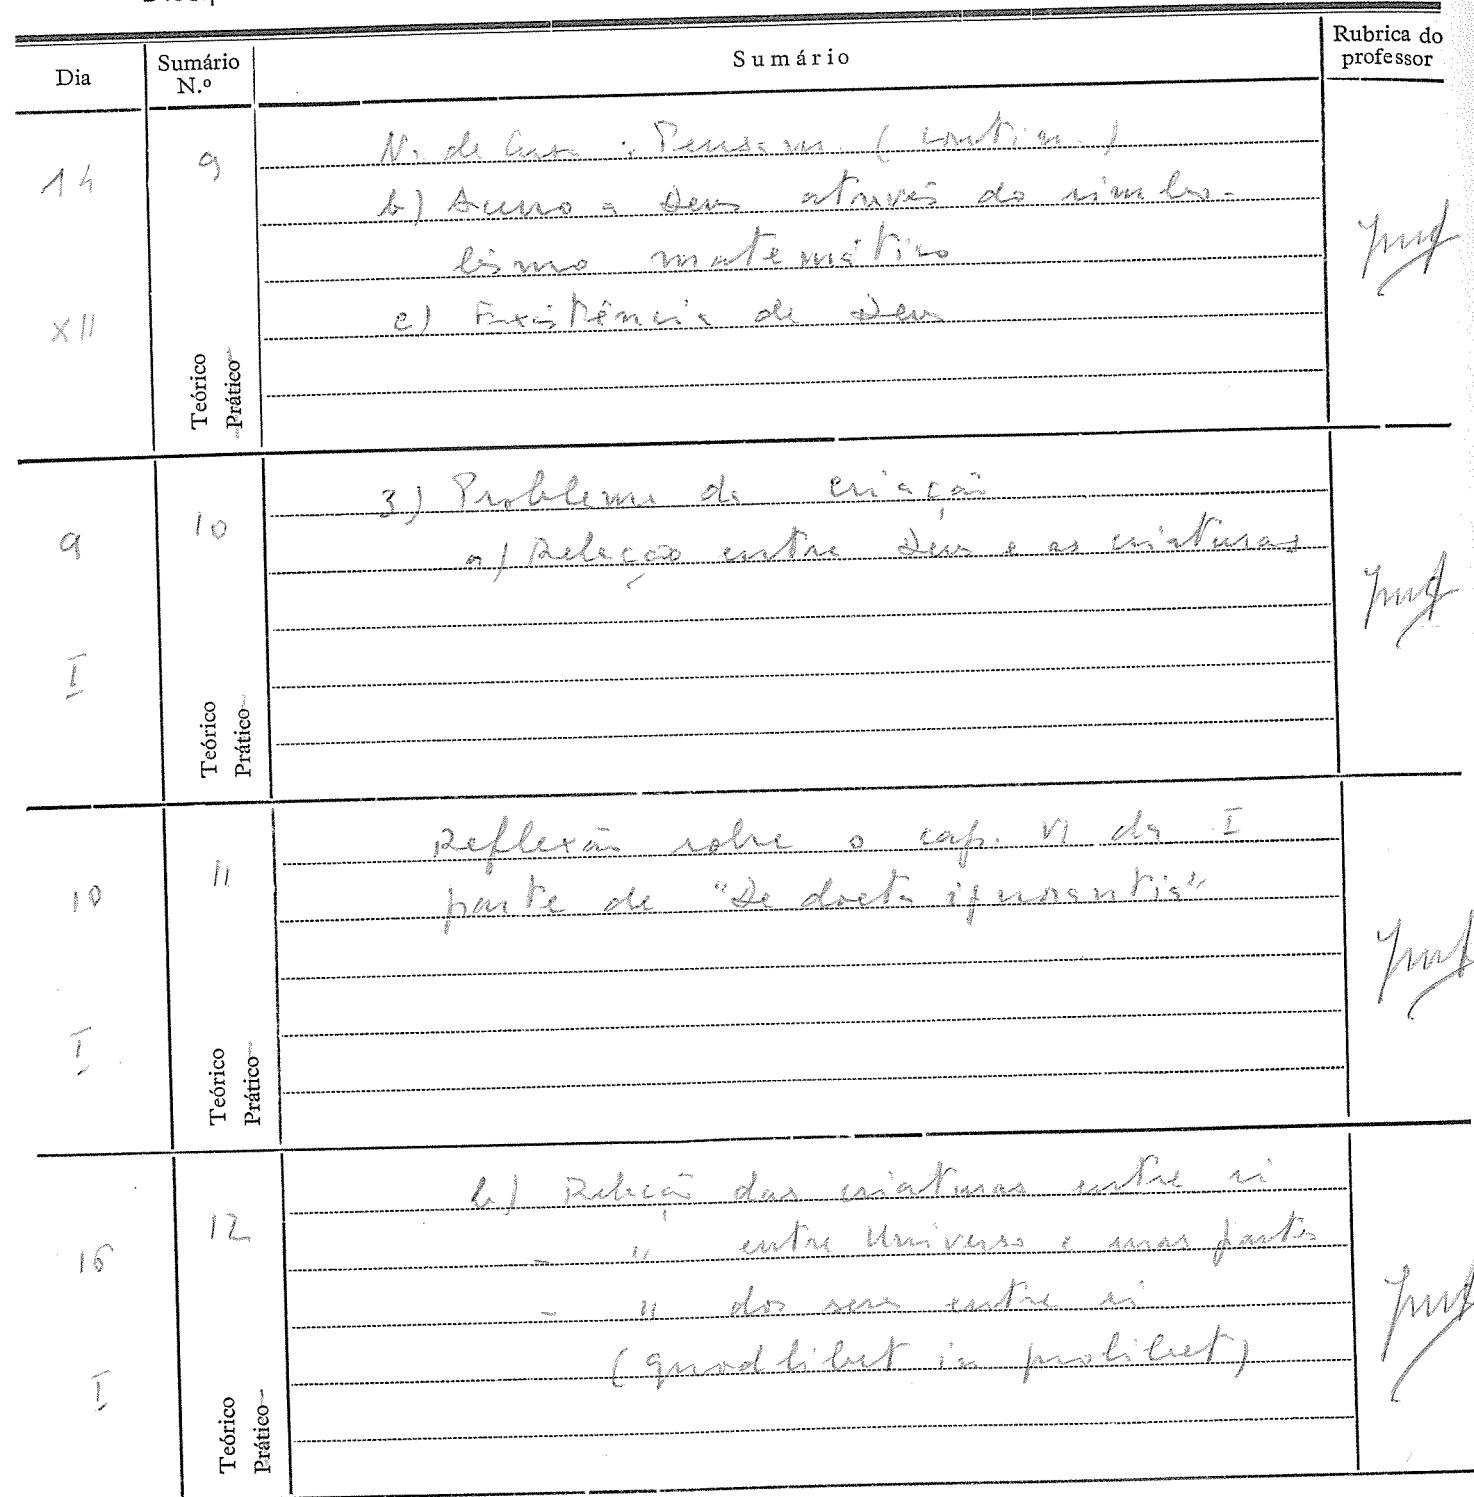 Dia
Sumário N.º
Sumário
Rubrica do professor
14
XII
9
Teórico
Prático
N. de Cusa : Pensam. (contin.)
b) Acesso a Deus através do simbo-
lismo matemático
c) Existência de Deus
9
I
10
Teórico
Prático
3) Problema da criação
a) Relação entre Deus e as criaturas
10
I
11
Teórico
Prático
Reflexão sobre o cap. VI da I
parte de "De docta ignorantia"
16
I
12
Teórico
Prático
b) Relação das criaturas entre si
- " entre Universo e suas partes
- " dos seres entre si
(quodlibet in quolibet)